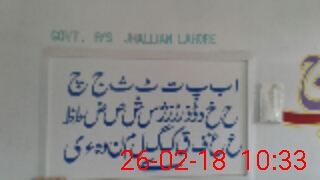 GOVT. P/S JHALLIAN LAHORE
ا ب پ ت ٹ ث ج چ
ح خ د ڈ ذ ر ڑ ز ژ س ش ص ض ط ظ
ع غ ف ق ک گ ل م ن و ہ ء ی
26-02-18 10:33